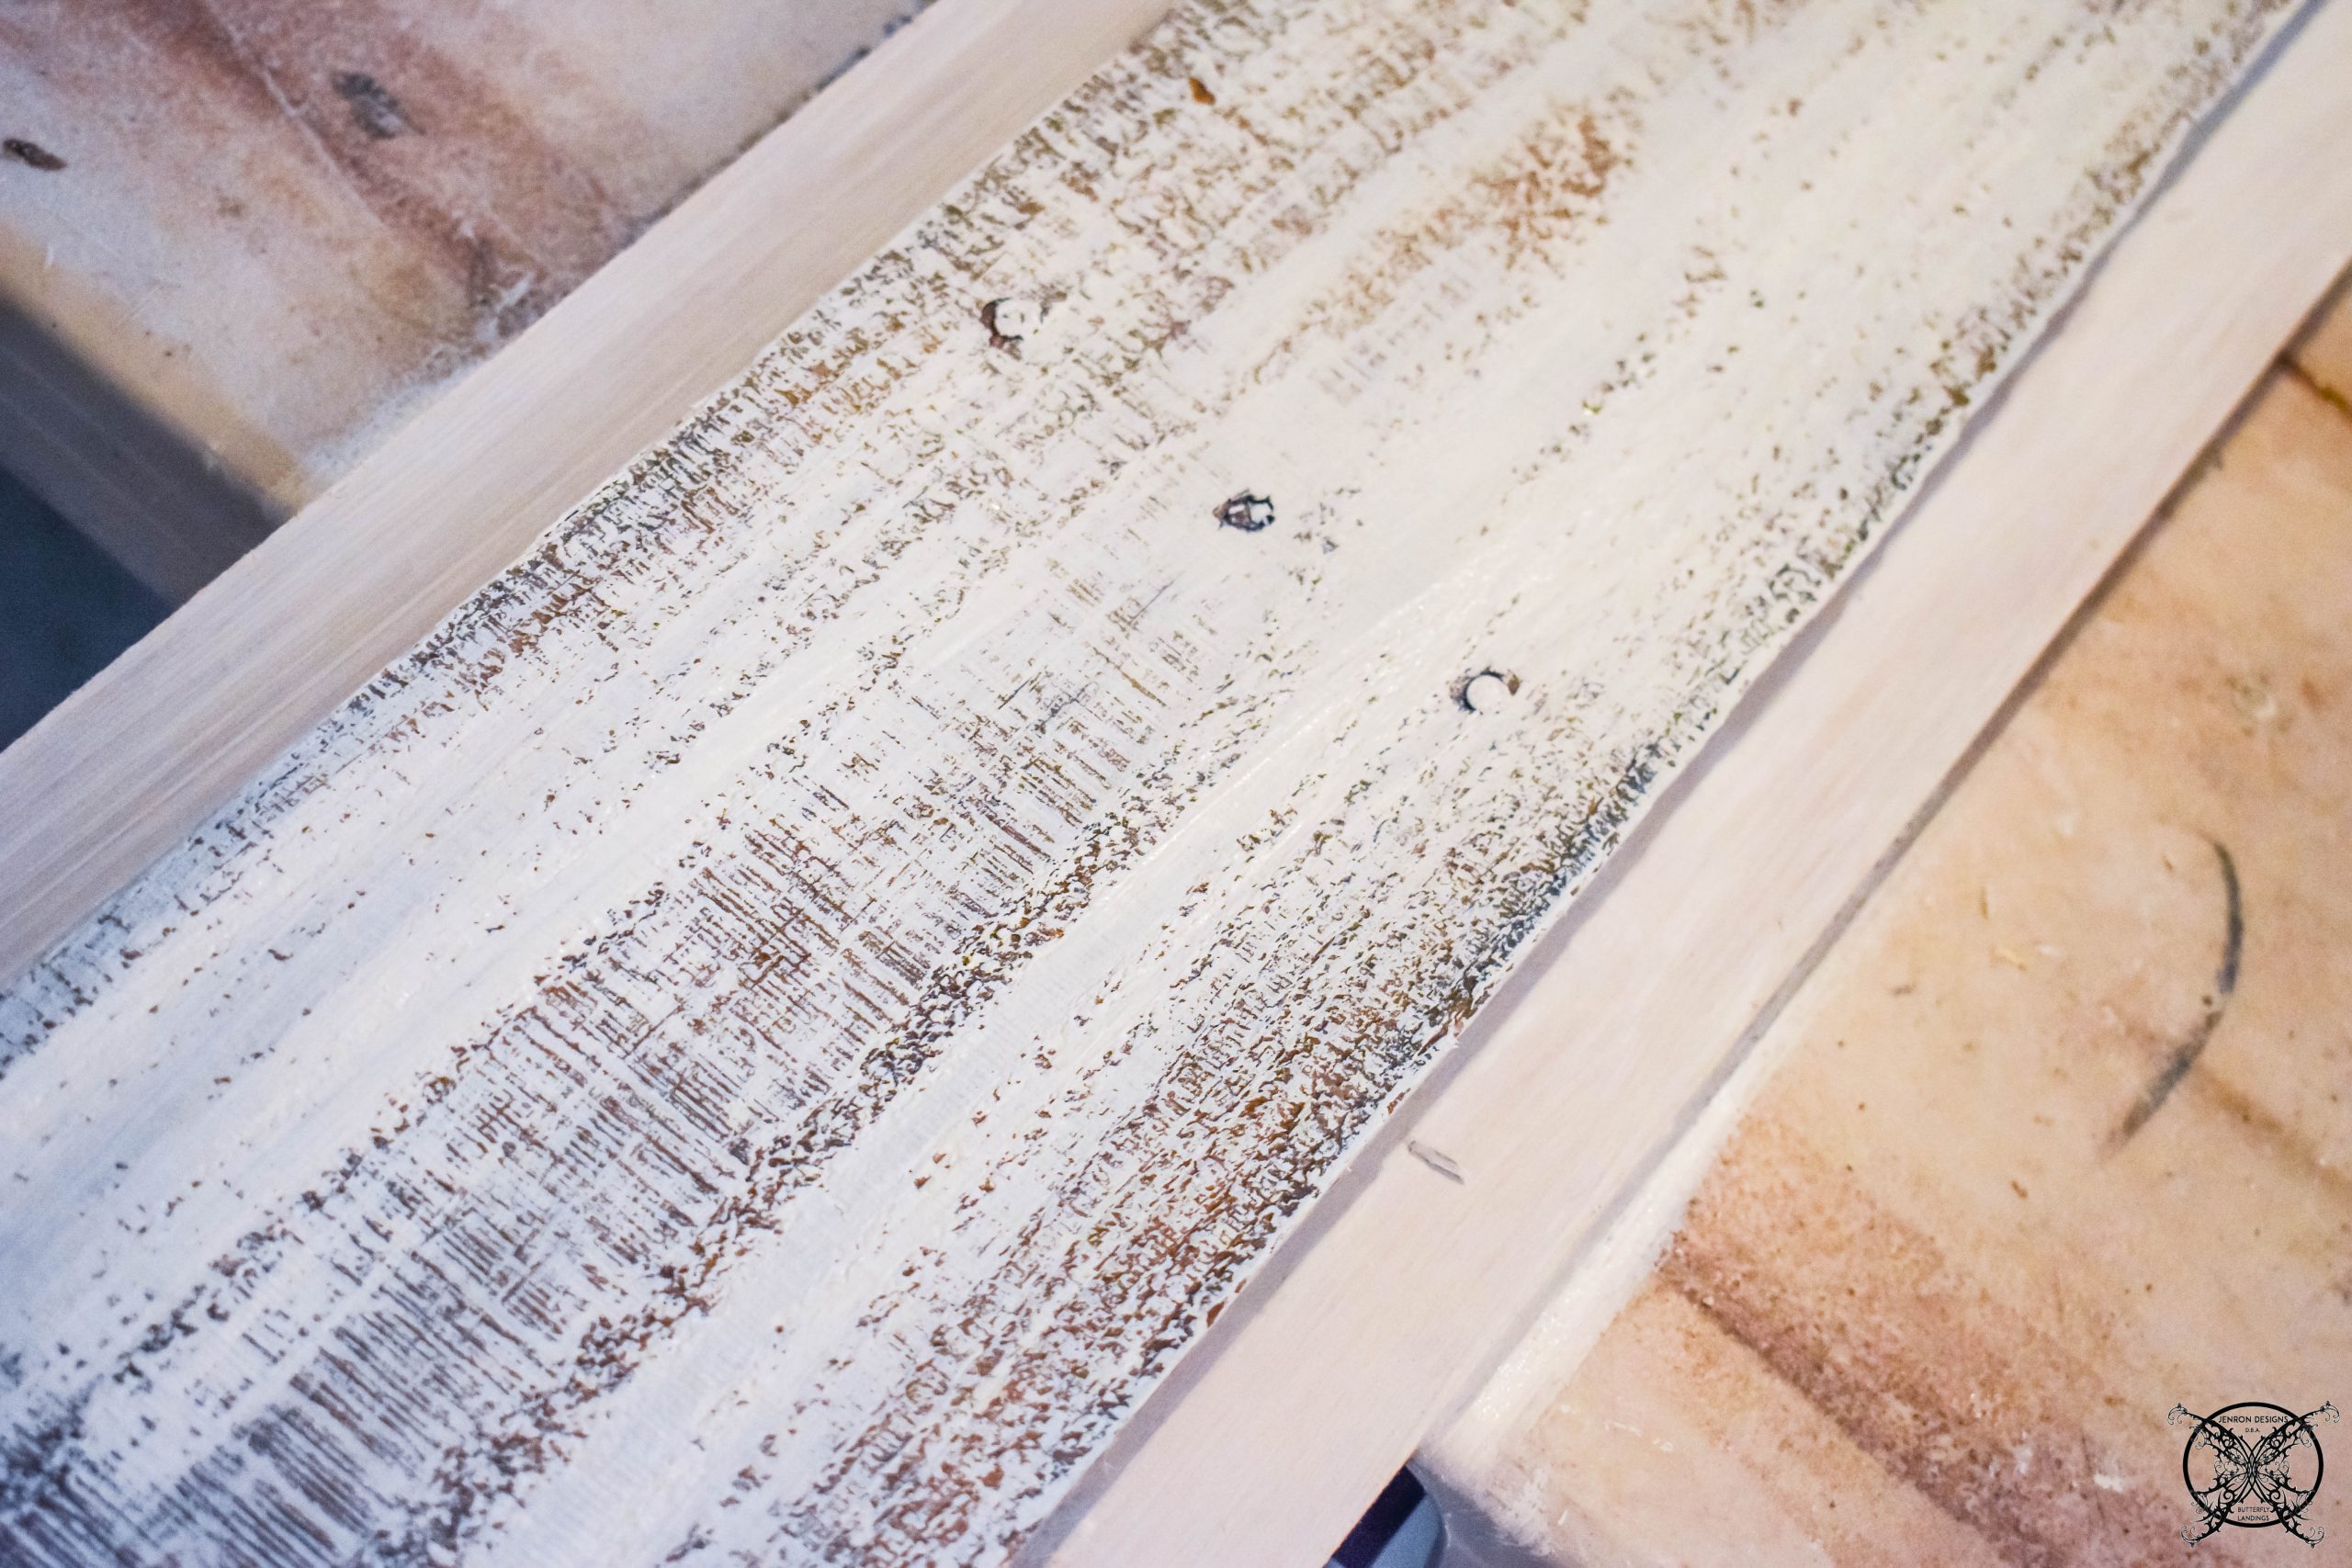 JENRON DESIGNS
D.B.A.
BUTTERFLY
LANDINGS